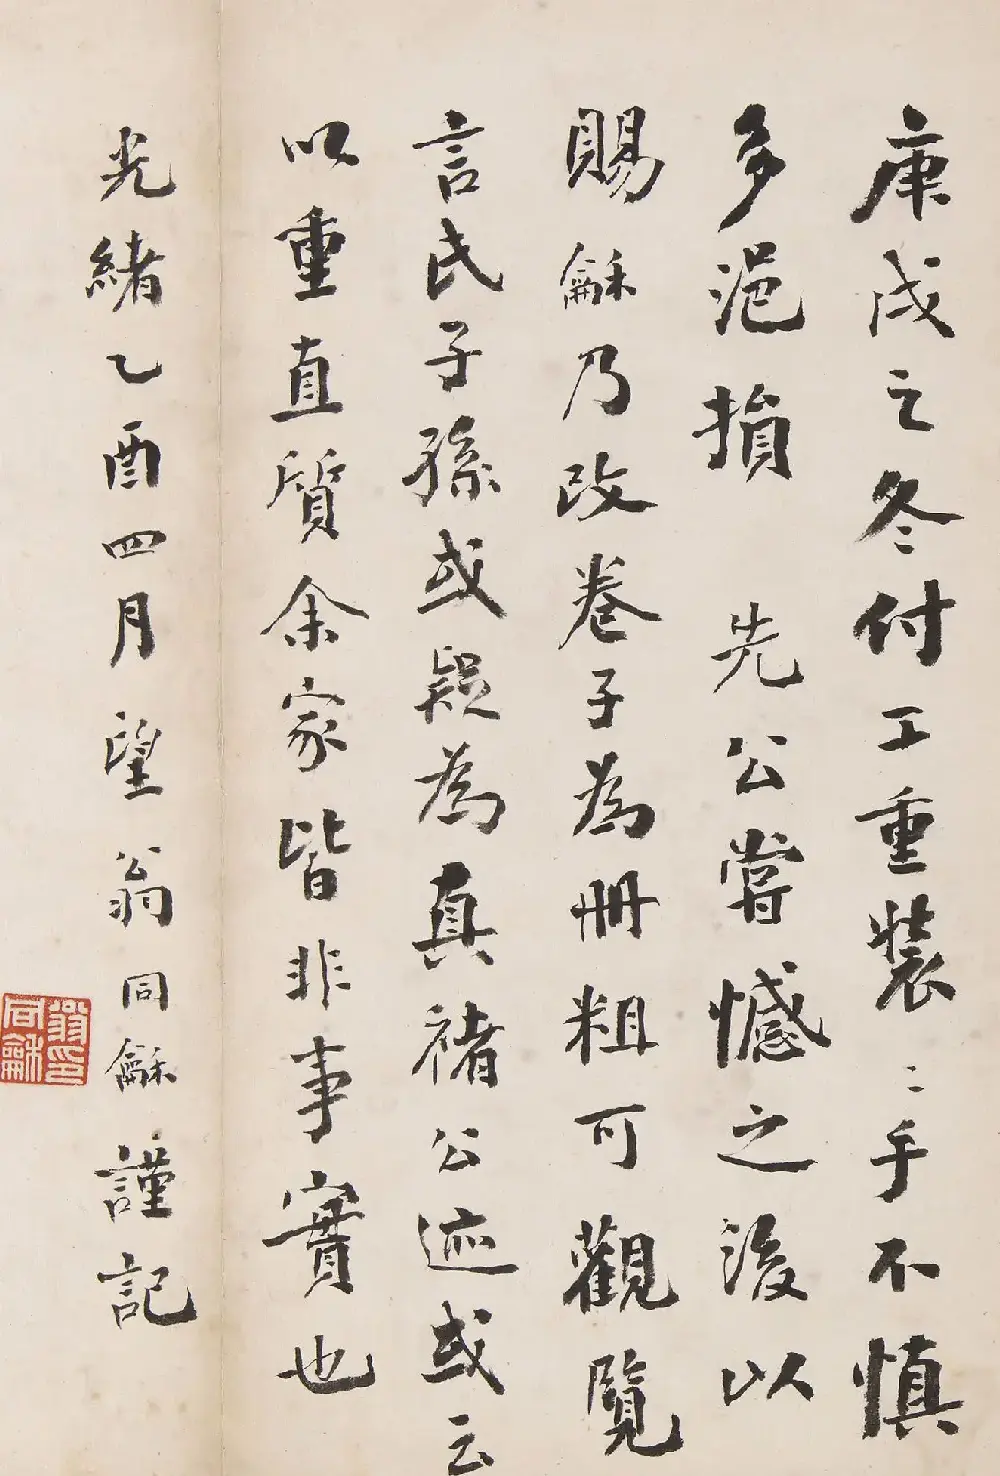 庚戌之冬付工重裝〻手不慎
多浥損 先公嘗憾之後以
賜龢乃改卷子為冊粗可觀覽
言氏子孫或疑為真褚公迹或云
以重直質余家皆非事實也
光緒乙酉四月望翁同龢謹記
翁同龢印